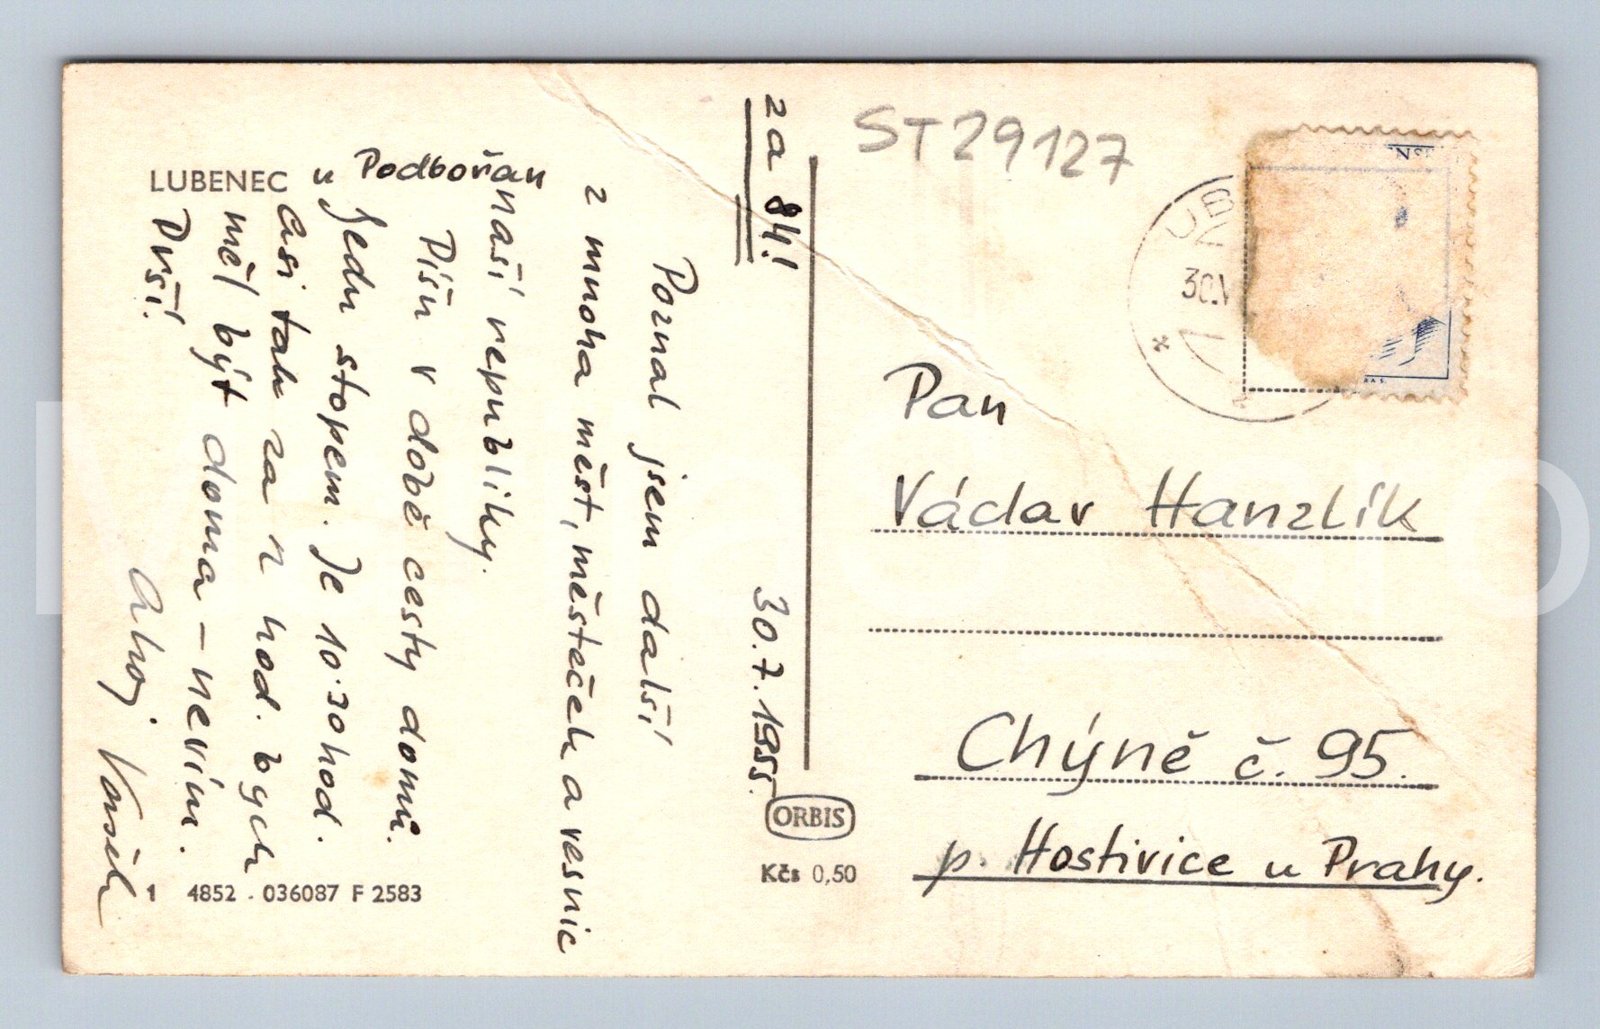 LUBENEC u Podbořan
za 84!
30.7.1955.
Poznal jsem další
z mnoha měst, městeček a vesnic
naší republiky.
Píšu v době cesty domů.
Jedu stopem. Je 10.30 hod.
Asi tak za n hod. bych
měl být doma – nevím.
Prší.
Ahoj Vašek
1 4852 . 036087 F 2583
ORBIS
Kčs 0,50
ST29127
UB
30.V
Pan
Václav Hanzlík
Chýně č. 95.
p. Hostivice u Prahy.